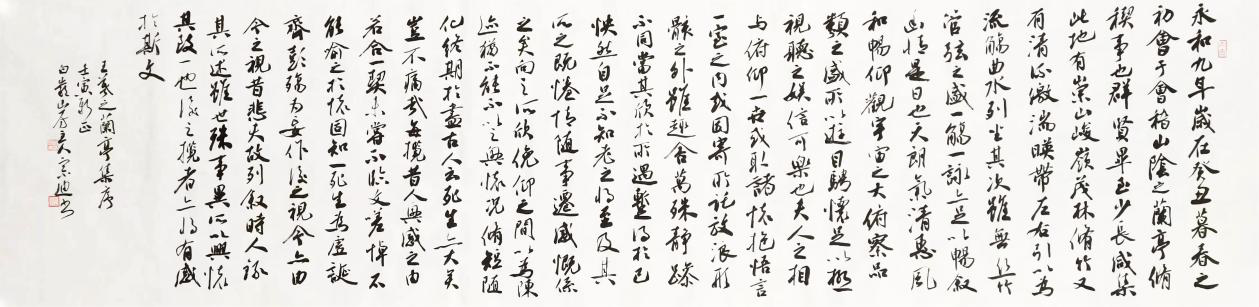 永和九年歲在癸丑暮春之
初會于會稽山陰之蘭亭脩
稧事也群賢畢至少長咸集
此地有崇山峻嶺茂林脩竹又
有清流激湍暎帶左右引以為
流觴曲水列坐其次雖無絲竹
管弦之盛一觴一詠亦足以暢敘
幽情是日也天朗氣清惠風
和暢仰觀宇宙之大俯察品
類之盛所以遊目騁懷足以極
視聽之娛信可樂也夫人之相
與俯仰一世或取諸懷抱悟言
一室之內或因寄所託放浪形
骸之外雖趣舍萬殊靜躁
不同當其欣於所遇暫得於己
怏然自足不知老之將至及其
所之既惓情隨事遷感慨係
之矣向之所欣俛仰之間以為陳
迹猶不能不以之興懷況脩短隨
化終期於盡古人云死生亦大矣
豈不痛哉每攬昔人興感之由
若合一契未嘗不臨文嗟悼不
能喻之於懷固知一死生為虛誕
齊彭殤為妄作後之視今亦由
今之視昔悲夫故列敘時人錄
其所述雖世殊事異所以興懷
其致一也後之攬者亦將有感
於斯文
王羲之蘭亭集序
壬寅新正